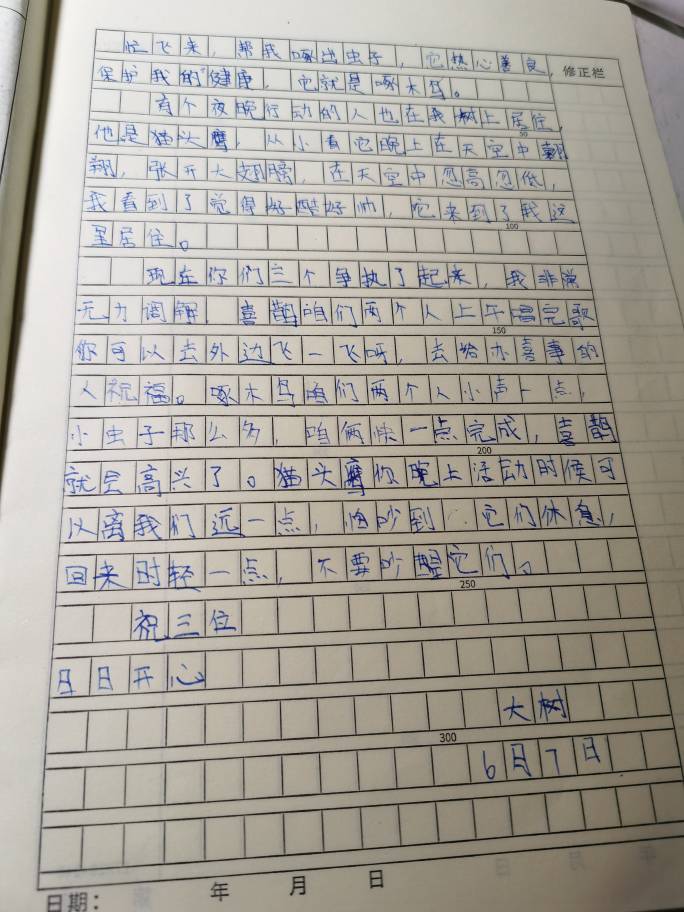 忙飞来，帮我啄出虫子，它热心善良，
修正栏
保护我的健康，它就是啄木鸟。
有个夜晚行动的人也在我树上居住，
50
他是猫头鹰，从小看它晚上在天空中翱
翔，张开大翅膀，在天空中忽高忽低，
我看到了觉得好酷好帅，它来到了我这
100
里居住。
现在你们三个争执了起来，我非常
无力调解，喜鹊咱们两个人上午唱完歌
150
你可以去外边飞一飞呀，去给办喜事的
人祝福。啄木鸟咱们两个人小声一点，
小虫子那么多，咱俩快一点完成，喜鹊
200
就会高兴了。猫头鹰你晚上活动时候可
以离我们远一点，怕吵到它们休息，
回来时轻一点，不要吵醒它们。
250
祝三位
日日开心
大树
300
6月7日
日期： 年 月 日